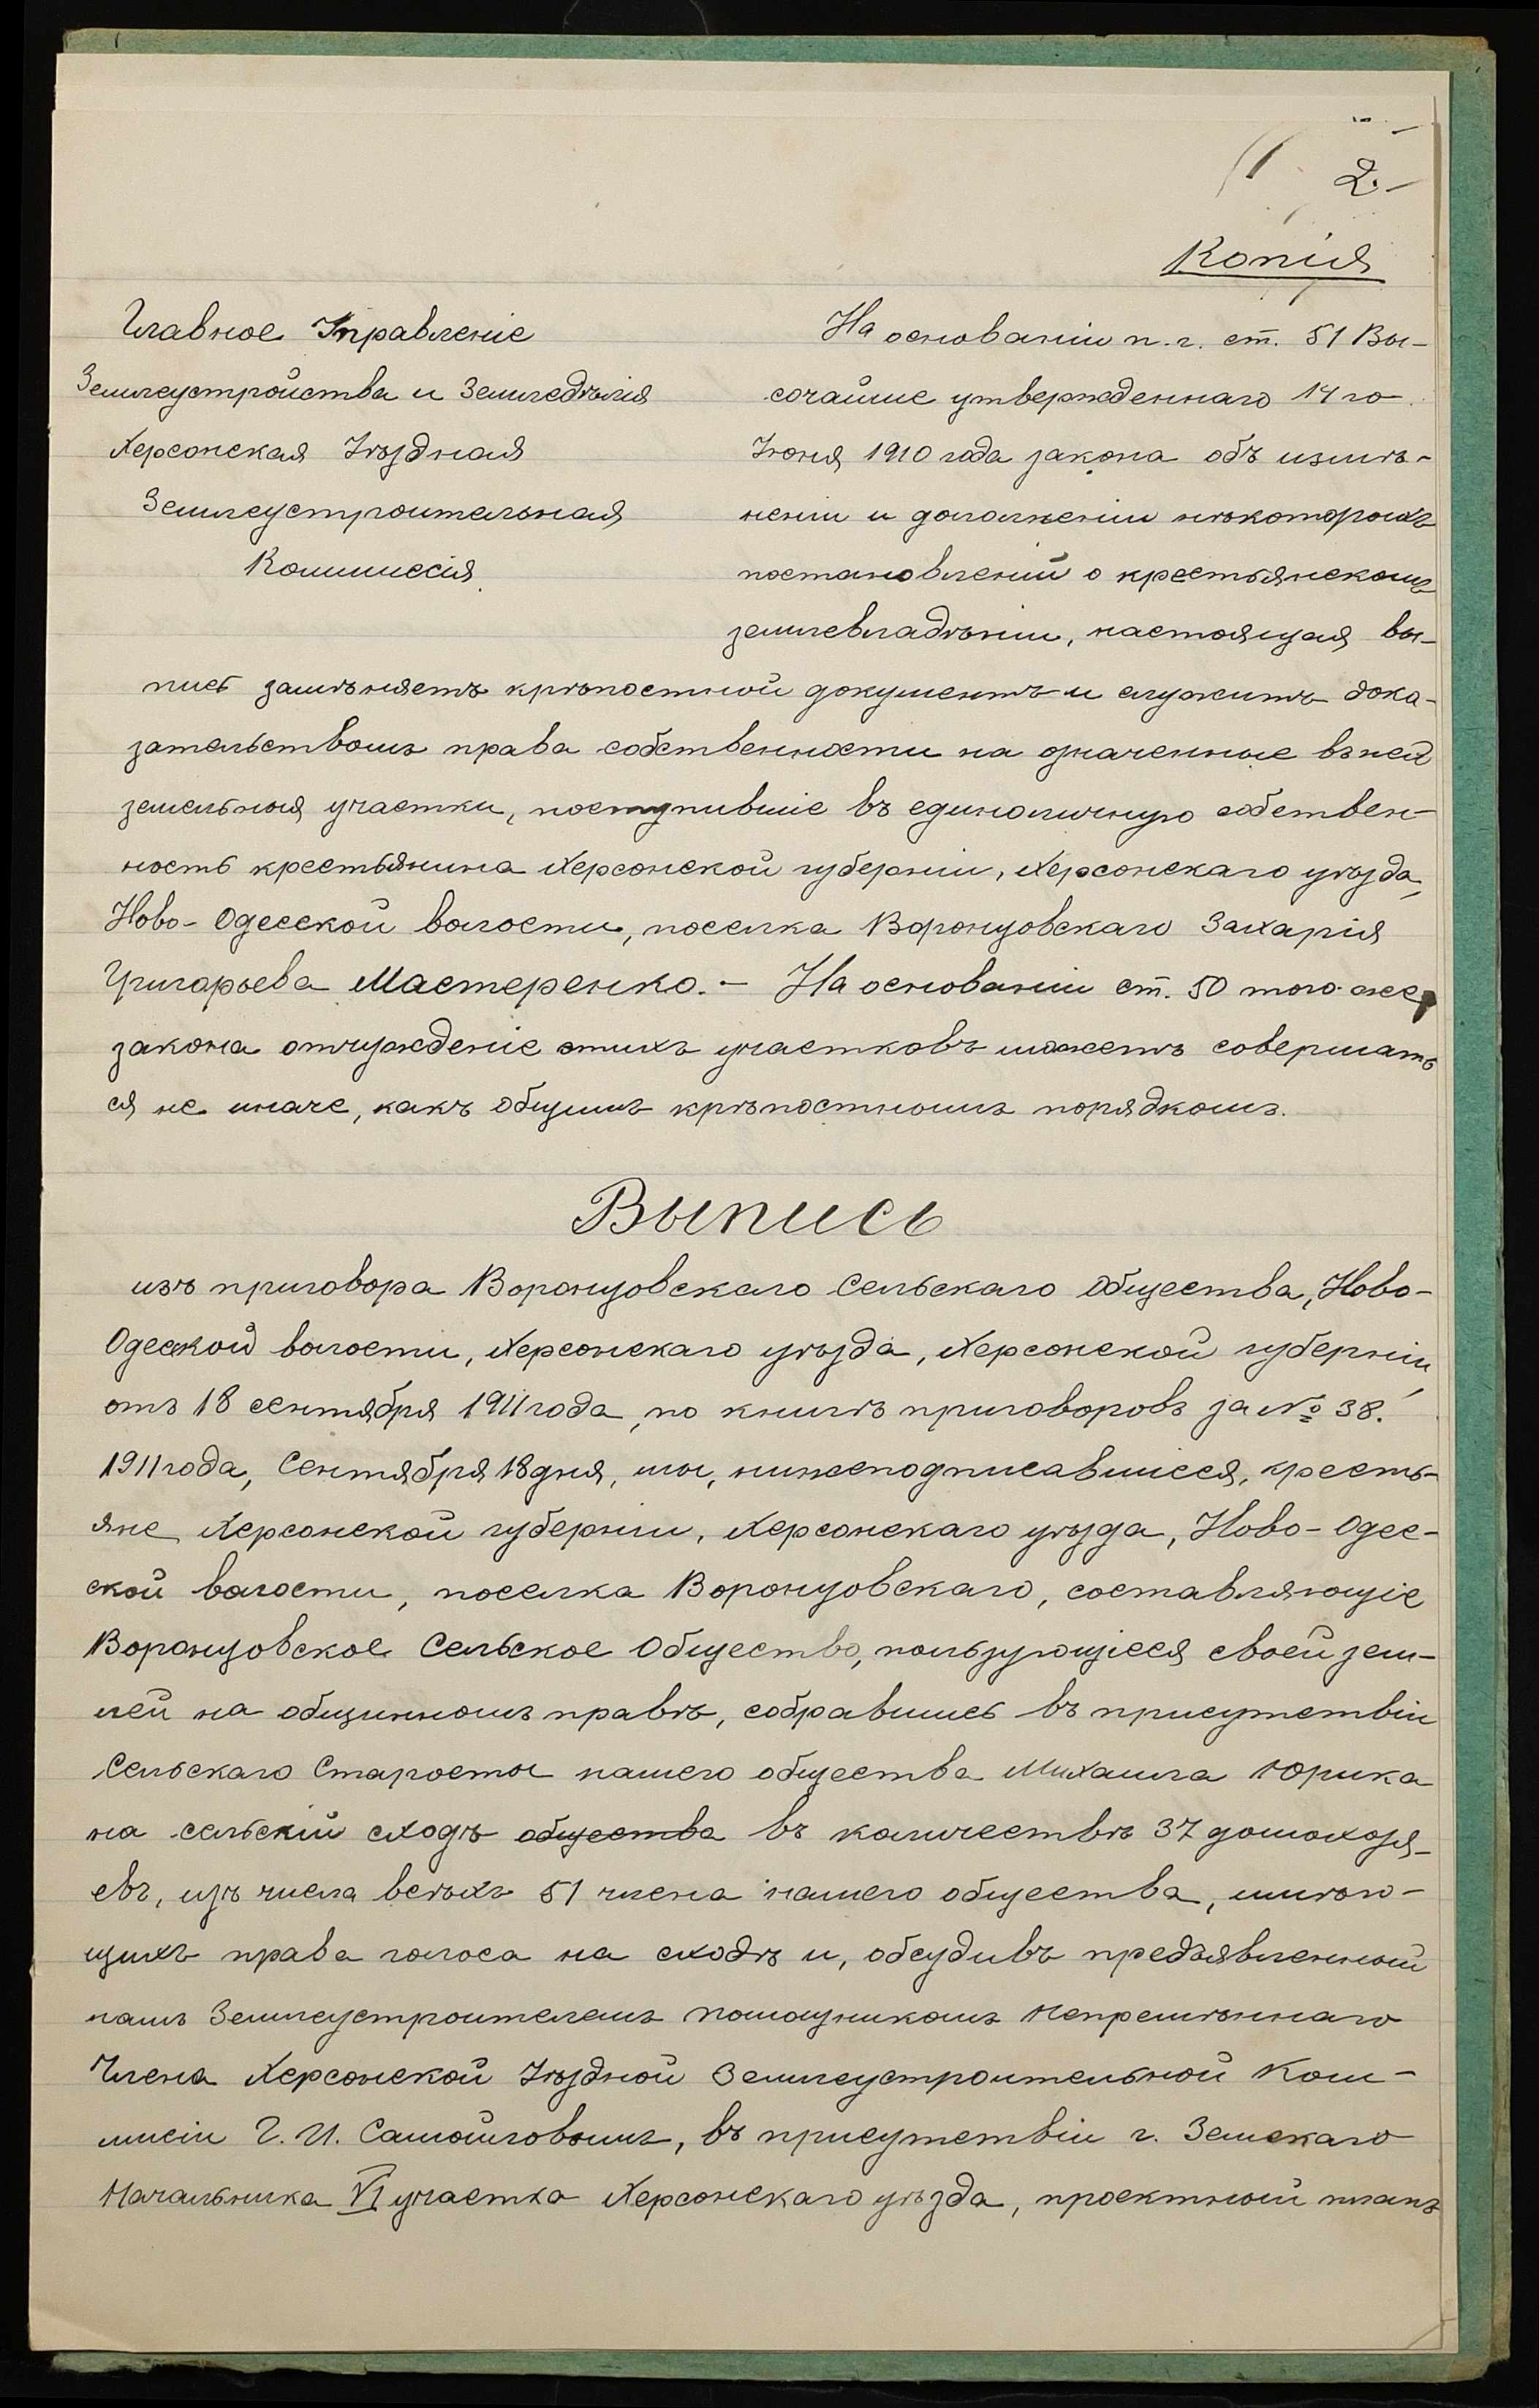 2.
Копія
Главное Управленіе
Землеустройства и Земледѣлія
Херсонская Уѣздная
Землеустроительная
Коммиссія
На основаніи п. г. ст. 51 Вы-
сочайше утвержденнаго 14 го
Іюня 1910 года закона объ измѣ-
неніи и дополненіи нѣкоторыхъ
постановленій о крестьянскомъ
землевладѣніи, настоящая вы-
пись замѣняетъ крѣпостной документъ и служитъ дока-
зательствомъ права собственности на означенные въ ней
земельныя участки, поступившіе въ единоличную собствен-
ность крестьянина Херсонской губерніи, Херсонскаго уѣзда,
Ново-Одесской волости, поселка Воронцовскаго Захарія
Григорьева Мастеренко. - На основаніи ст. 50 того-же
закона отчужденіе этихъ участковъ можетъ совершать
ся не иначе, какъ общимъ крѣпостнымъ порядкомъ.
Выпись
изъ приговора Воронцовскаго Сельскаго Общества, Ново-
Одесской волости, Херсонскаго уѣзда, Херсонской губерніи,
отъ 18 сентября 1911 года, по книгѣ приговоровъ за № 38.
1911 года, Сентября 18 дня, мы, нижеподписавшіеся, кресть-
яне Херсонской губерніи, Херсонскаго уѣзда, Ново-Одес-
ской волости, поселка Воронцовскаго, составляющіе
Воронцовское Сельское Общество, пользующіеся своей зем-
лей на общинномъ правѣ, собравшись въ присутствіи
Сельскаго Старосты нашего общества Михаила Юрика
на сельскій сходъ общества въ количествѣ 37 домохозя-
евъ, изъ числа всѣхъ 51 члена нашего общества, имѣю-
щихъ права голоса на сходѣ и, обсудивъ предъявленный
намъ Землеустроителемъ помощникомъ Непремѣннаго
Члена Херсонской Уѣздной Землеустроительной Ком-
мисіи Г. И. Самойловымъ, въ присутствіи г. Земскаго
Начальника VI участка Херсонскаго уѣзда, проектный планъ